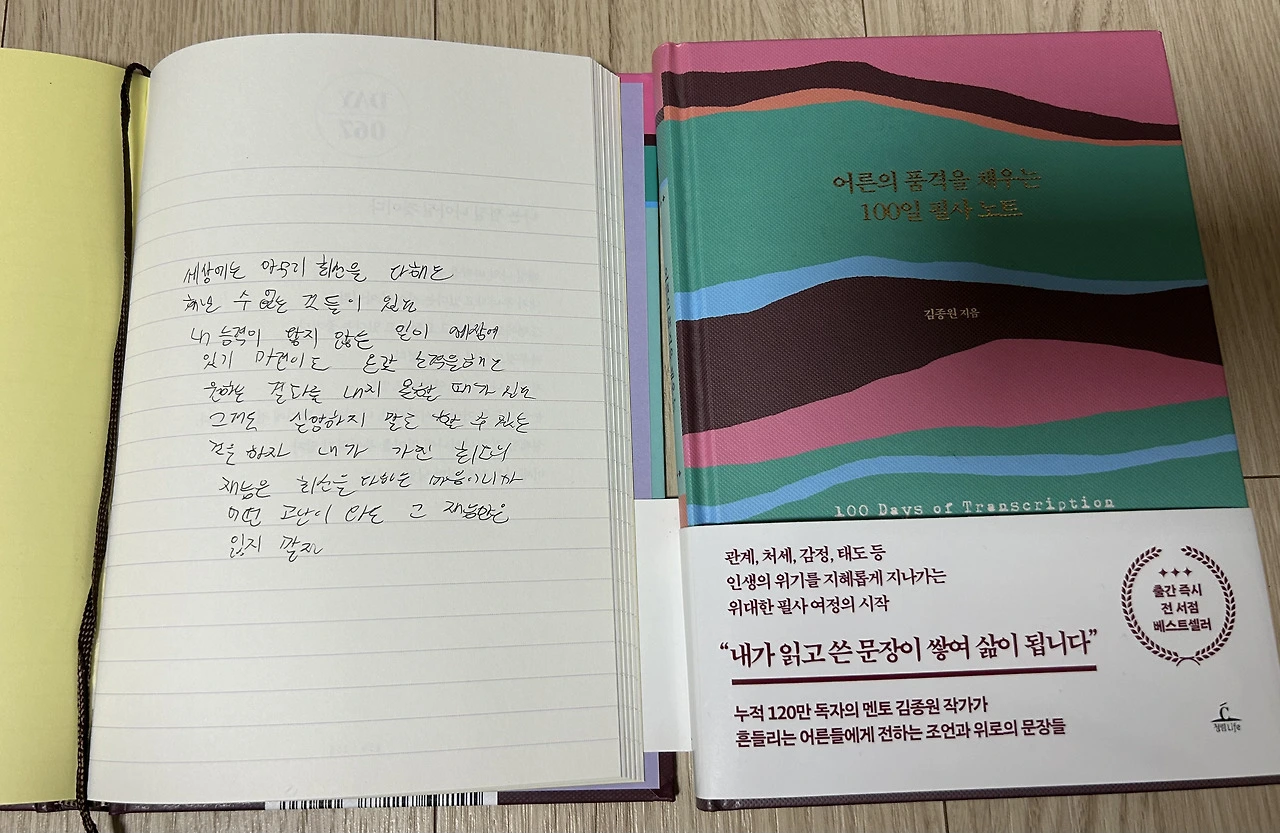 세상에는 아무리 최선을 다해도
해낼 수 없는 것들이 있다
내 능력이 닿지 않는 일이 세상에
있기 마련이다 온갖 노력을해도
원하는 결과를 내지 못할 때가 있다
그래도 실망하지 말고 할 수 있는
것을 하자 내가 가진 최고의
재능은 최선을 다하는 마음이니까
어떤 고난이 와도 그 재능만은
잃지 말자
어른의 품격을 채우는
100일 필사 노트
김종원 지음
100 Days of Transcription
관계, 처세, 감정, 태도 등
인생의 위기를 지혜롭게 지나가는
위대한 필사 여정의 시작
“내가 읽고 쓴 문장이 쌓여 삶이 됩니다”
누적 120만 독자의 멘토 김종원 작가가
흔들리는 어른들에게 전하는 조언과 위로의 문장들
출간 즉시
전 서점
베스트셀러
청림Life